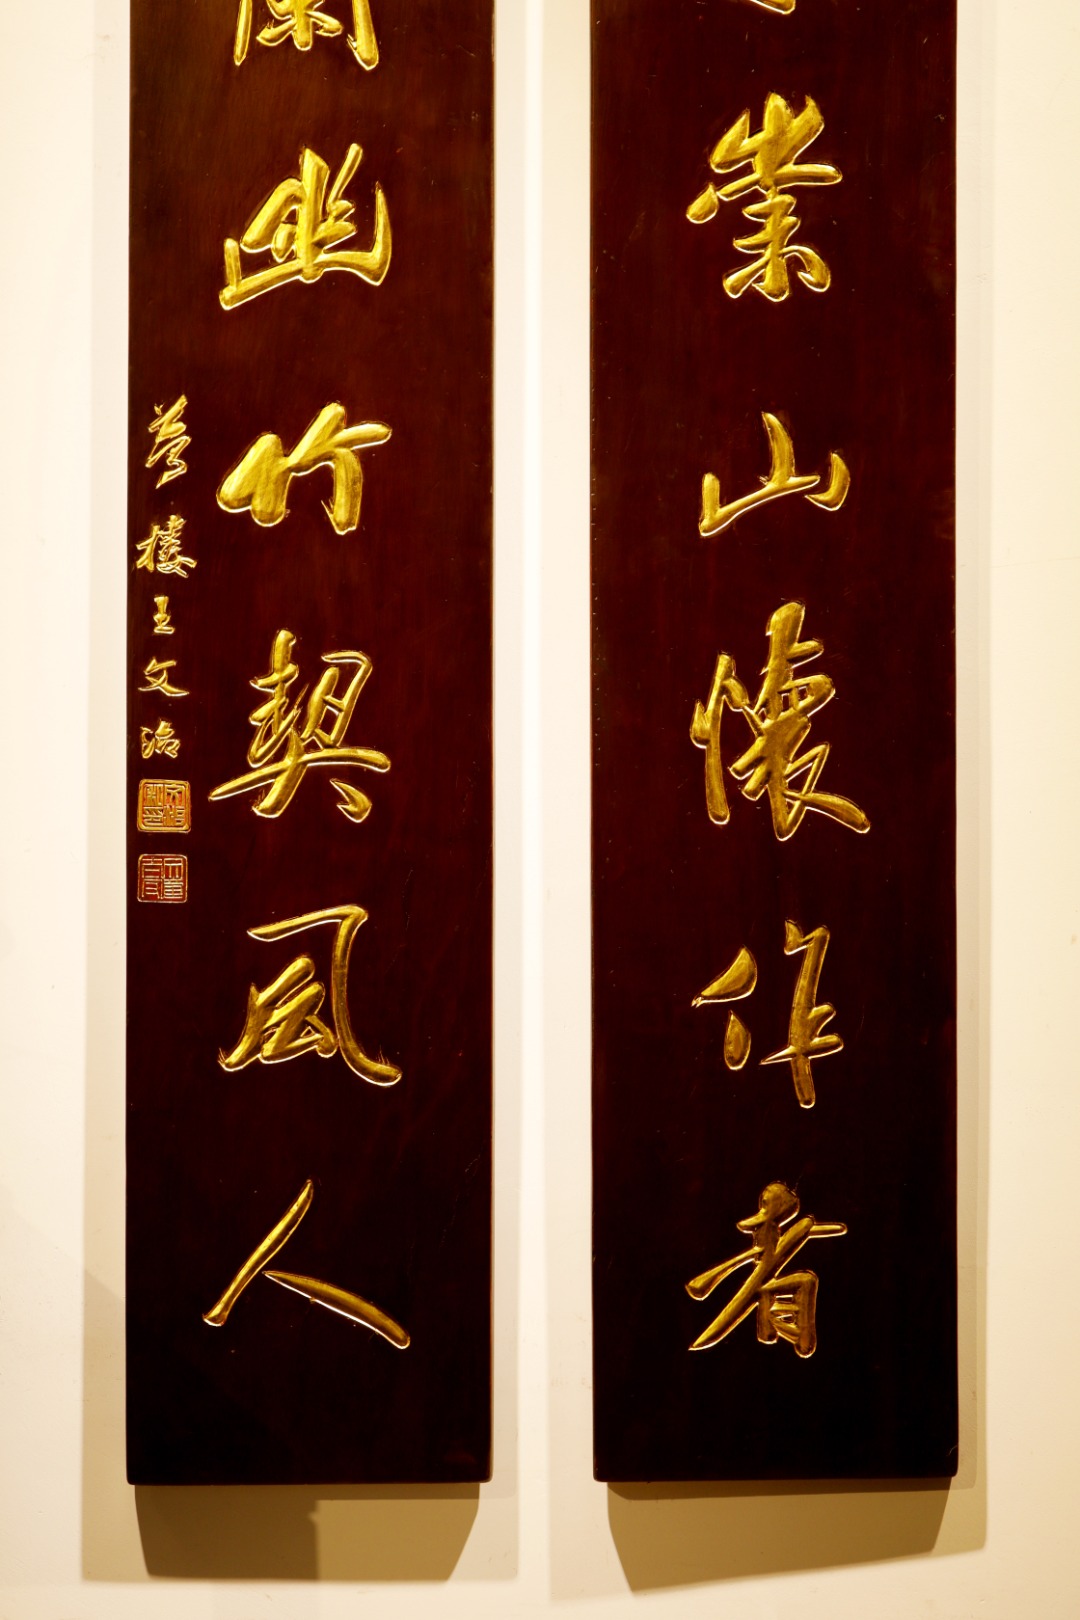 崇山懷作者
蘭幽竹契風人
夢樓王文治